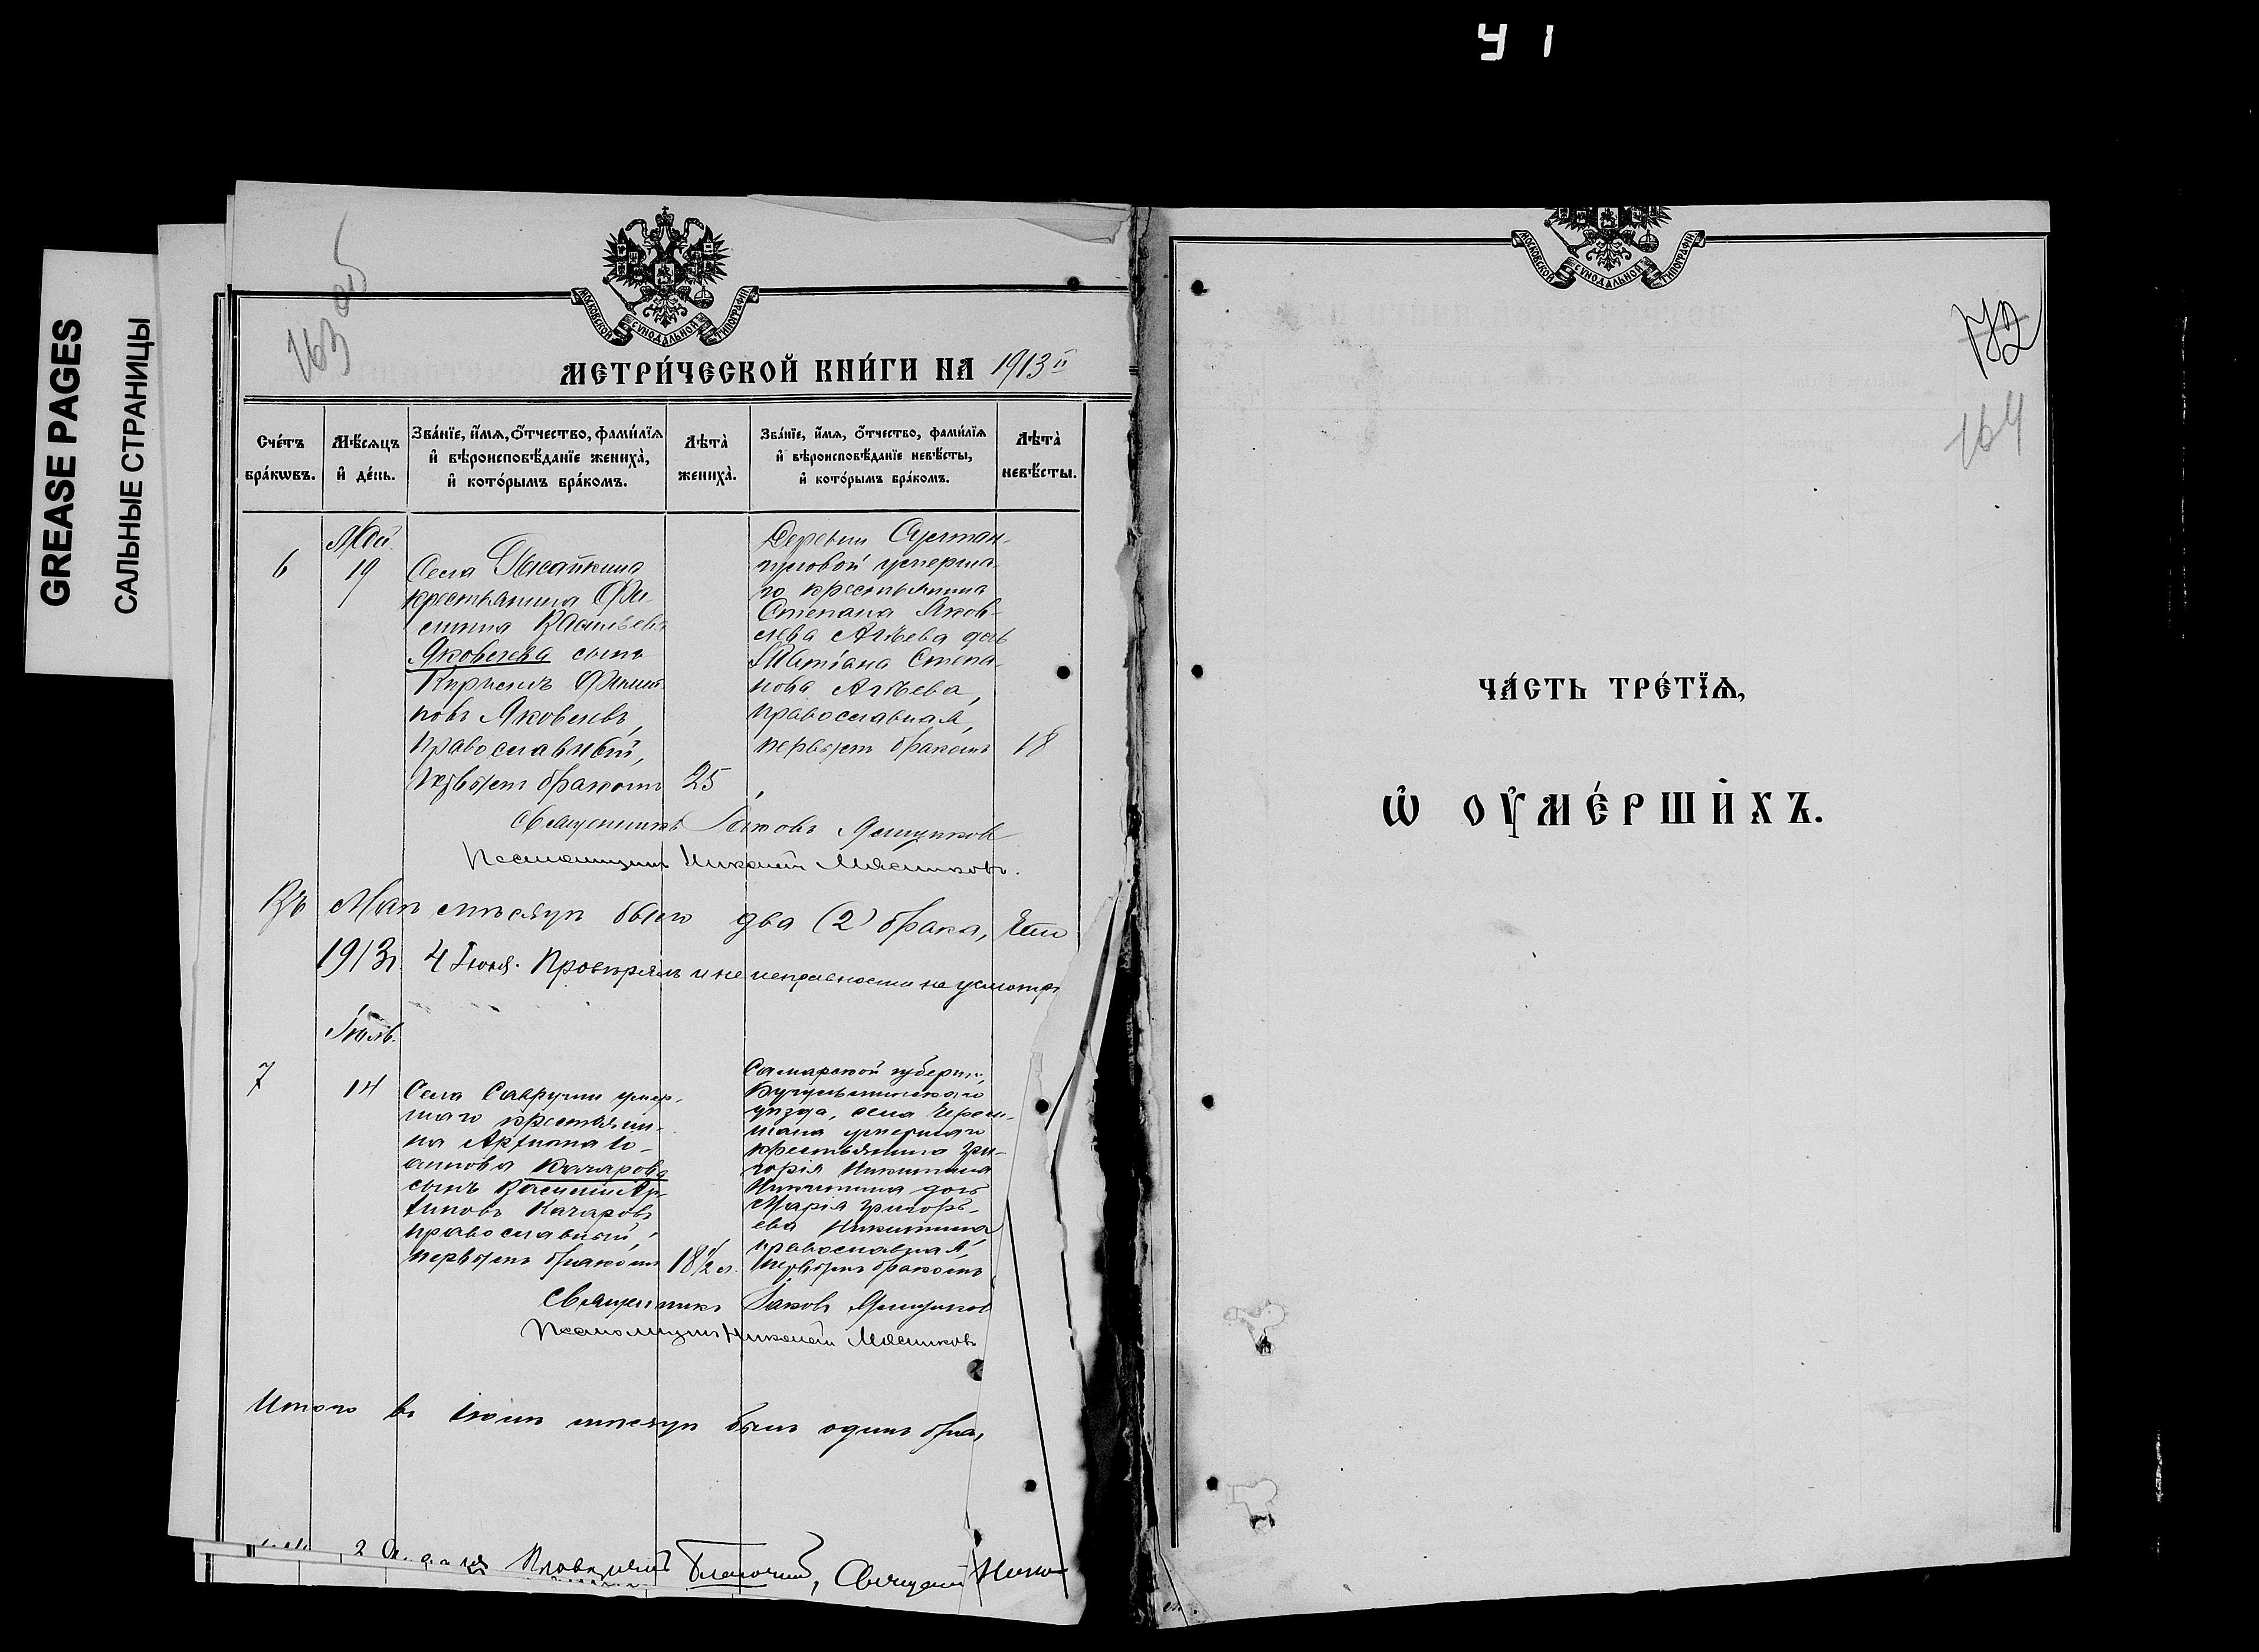 У 1
GREASE PAGES
САЛЬНЫЕ СТРАНИЦЫ
163 об
МОСКОВСКОЙ СУНОДАЛЬНОЙ ТИПОГРАФІИ
МЕТРИ́ЧЕСКОЙ КНИ́ГИ НА 1913 г.
Сче́тъ бра́кѡвъ.
Мѣ́сяцъ и҆ де́нь.
Зва́нїе, и҆́мѧ, ѻ҆́тчество, фами́лїѧ и҆ вѣроисповѣ́данїе жениха̀, и҆ кото́рымъ бра́комъ.
Лѣта̀ жениха̀.
Зва́нїе, и҆́мѧ, ѻ҆́тчество, фами́лїѧ и҆ вѣроисповѣ́данїе невѣ́сты, и҆ кото́рымъ бра́комъ.
Лѣта̀ невѣ́сты.
Май
6
19
Села
крестьянина Фи-
липпа Васильева
Яковлева сынъ
Кириллъ Филип-
повъ Яковлевъ,
православный,
первымъ бракомъ
25
Деревни Султан-
гуловой умерша-
го крестьянина
Степана Яков-
лева Агѣева дочь
Татіана Степа-
нова Агѣева,
православная,
первымъ бракомъ
18
Священникъ Іаковъ Ямщиковъ
Псаломщикъ Николай Мясниковъ.
Въ Маѣ мѣсяцѣ было два (2) брака,
1913 г. 4 Іюня. Провѣрялъ и неисправности не усмотр
Іюль.
7
14
Села Саврухи умер-
шаго крестьяни-
на Архипа Іо-
аннова Качарова
сынъ Василій Ар-
хиповъ Качаровъ
православный,
первымъ бракомъ
18½ л.
Самарской губерніи,
Бугульминскаго
уѣзда, села Черем-
шана умершаго
крестьянина Гри-
горія Никитина
Никитина дочь
Марія Григорь-
ева Никитина
православная,
первымъ бракомъ
Священникъ Іаковъ Ямщиковъ
Псаломщикъ Николай Мясниковъ
Итого въ Іюлѣ мѣсяцѣ былъ одинъ бра
Провѣрялъ Благочин, Священ Нико
МОСКОВСКОЙ СУНОДАЛЬНОЙ ТИПОГРАФІИ
172
164
ЧА́СТЬ ТРЕ́ТЇѦ,
Ѡ҆ ОУ҆МЕ́РШИХЪ.